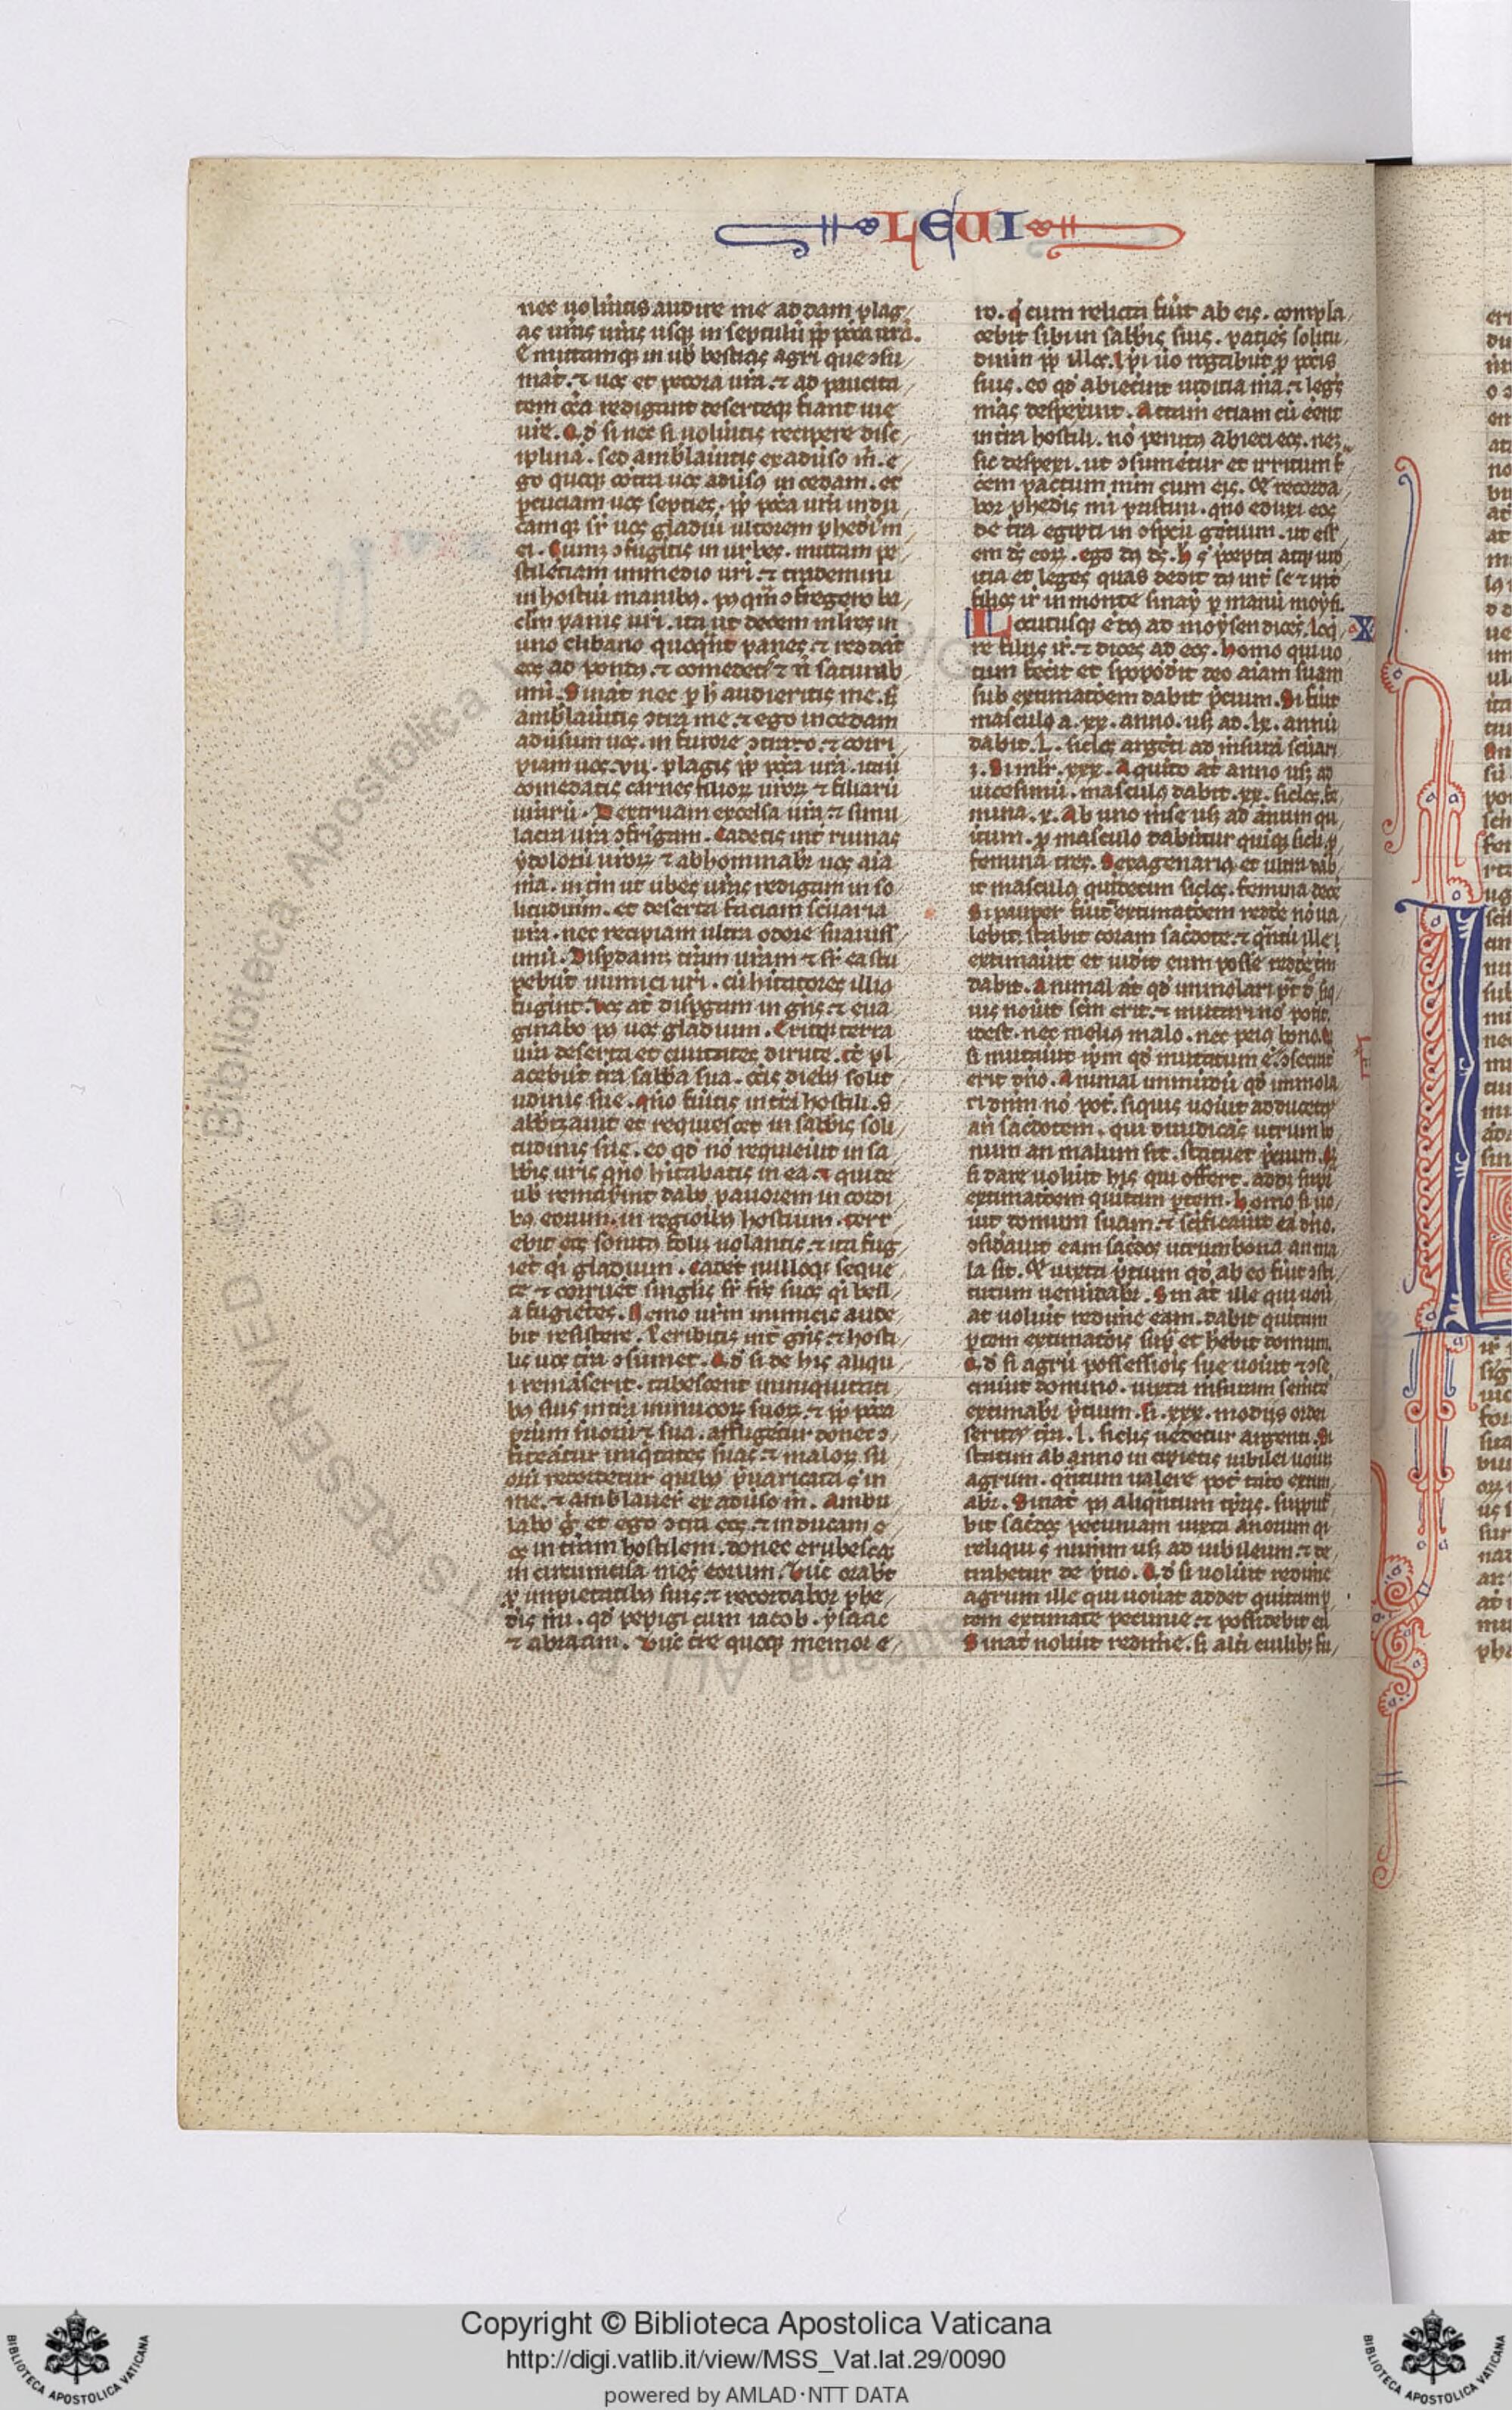 LEVI
nec uolueritis audire me addam plag
as uras usq in septulu pp pcca ura.
Emittamq in uos bestias agri que osu
mat. et uos et pecora ura. et ad paucita
tem oia redigant deserteq fiant uie
ure. Qd si nec si uolueritis recipere disc
iplina. sed ambulaueritis exaduerso m. e
go quoq cotra uos aduersus incedam. et
pcutiam uos septies. pp pcca ura indu
camq sr uos gladiu ultorem phederis m
ei. Cumq ofugitis in urbes. mittam pe
stilentiam in medio uri. et trademini
in hostiu manibus. pq qm ofregero ba
clm panis uri. ita ut decem mlires in
uno clibano quoqnt panes. et reddat
eos ad pondus. et comedetis et n saturab
imi. Sinat nec p h audieritis me. s
ambulaueritis otra me. et ego incedam
aduersum uos. in furore otrario. et corri
piam uos. vii. plagis pp pcca ura. ita u
comedatis carnes filiorum urorum et filiaru
uraru. Destruam excelsa ura et simu
lacra ura ofrigam. Cadetis int ruinas
ydoloru urorum et abhominabr uos aia
ma. in tm ut urbes uras redigam in so
litudinem. et deserta faciam scuaria
ura. nec recipiam ultra odore suauiss
imu. Disperdamq terram uram et sr ea stu
pebut inimici uri. cu hitatores illius
fuerint. Uos at dispergam in gntes. et eua
ginabo post uos gladium. Eritq terra
ura deserta et ciuitates dirute. tc pl
acebut tra sabba sua. cctis diebus solit
udinis sue. qno fuitis in tra hostili. S
abbizauit et requiescet in sabbis soli
tudinis sue. eo qd no requieuit in sa
bbis uris qno hitabatis in ea. et qui de
uob remaserint dabo pauorem in cordi
bus eorum. in regioibus hostium. terr
ebit eos sonitus folii uolantis. et ita fug
iet qi gladium. Cadet nulloqi seque
te. et corruet singlis sr frs suos qi bell
a fugietes. Nemo urm inimicis aude
bit resistere. Peribitis int gntes. et hosti
lis uos tra osumet. Qd si de his aliqu
i remaserit. tabescent in iniquitati
bus suis in tra inimicorum suorum. et pp pcca
prum suoru et sua. affligetur donec o
fiteatur iniqtates suas. et malorum su
oru recordetur quibus puaricata s in
me. et amblauer ex aduso m. Ambu
labo g et ego otra eos. et inducam e
os in tram hostilem. donec erubescat
in circumcisa mes eorum. Tuc orabt
p impietatibus suis. et recordabor phe
dis mi. qd pepigi cum iacob. ysaac
et abraam. Tuc tre quoq memor e
ro. q cum relicta fuit ab eis. compla
cebit sibi in sabbis suis. paties solitu
dinm pp illos. Ipi uo rogabut p pctis
suis. eo qd abiecint iudicia ma. et leges
mas despexint. Attam etiam cu eent
in tra hostili. no penitus abieci eos. neq
sic despexi. ut osumetur et irritum f
cem pactum mm cum eis. Et recorda
bor phedis mi pristini. qno eduxi eos
de tra egipti in ospectu gentium. ut ess
em ds eorum. ego dns ds. h s pcepta atq iud
icia et leges quas dedit dns int se et int
filios isrl in monte sinay p manu moysi.
Locutusq e dns ad moysen dices. loq X
re filiis isrl. et dices ad eos. homo qui uo
tum fecit et spopodit deo aiam suam
sub extimatoem dabit pcium. Si fuit
masculus a. xx. anno. usq ad. lx. annu
dabit. L. siclos argeti ad msura scuari
i. Si mlr. xxx. A quito at anno usq ad
uicesimu. masculus dabit. xx. siclos. fe
mina. x. Ab uno mse usq ad anum qu
itum. p masculo dabitur quiq sicli. p
femina tres. Sexagenarius et ultra dab
it masculus quidecim siclos. femina dece
Si pauper fuit et extimatoem redde no ua
lebit. stabit coram sacdote. et qntu ille
extimauit et uidit eum posse reddem
dabit. Animal at qd immolari pt do. siq
uis nouit scm erit. et mutari no potit.
idest. nec melius malo. nec peius bono. q
si mutauit ipm qd mutatum e. osecrat
erit dno. Animal immudu qd immola
ri dnm no pot. siquis uoluit adducetur
an sacdotem. qui diiudicas utrum bo
num an malum sit. statuet pcium. Q
si dare uoluit his qui offert. addet supr
extimatoem quitam ptem. Homo si uo
uit domum suam. et scificauit ea dno.
osidauit eam sacdos utrum bona an ma
la sit. Et iuxta pcium qd ab eo fuit osti
tutum uenudabr. Sin at ille qui uou
at uoluit redime eam. dabit quitam
ptem extimatois supr et hebit domum.
Qd si agru possessiois sue uouit et ose
crauit domino. iuxta msuram semite
extimabr pcium. Si. xxx. modiis ordei
seritur tra. L. siclis uedetur argenti. Si
statim ab anno incipietis iubilei uouit
agrum. qntum ualere pot tato extim
abr. Sinat p aliqntum tpris. supput
bit sacdos pecuniam iuxta anorum qi
reliqui s numm usq ad iubileum. et de
trahetur de pcio. Qd si uoluit redime
agrum ille qui uouat addet quitam p
tem extimate pecunie. et possidebit eu
Sinat noluit redime. si alti cuilibq fu
© Biblioteca Apostolica Vaticana ALL RIGHTS RESERVED
Copyright © Biblioteca Apostolica Vaticana
http://digi.vatlib.it/view/MSS_Vat.lat.29/0090
powered by AMLAD·NTT DATA
BIBLIOTECA APOSTOLICA VATICANA
BIBLIOTECA APOSTOLICA VATICANA